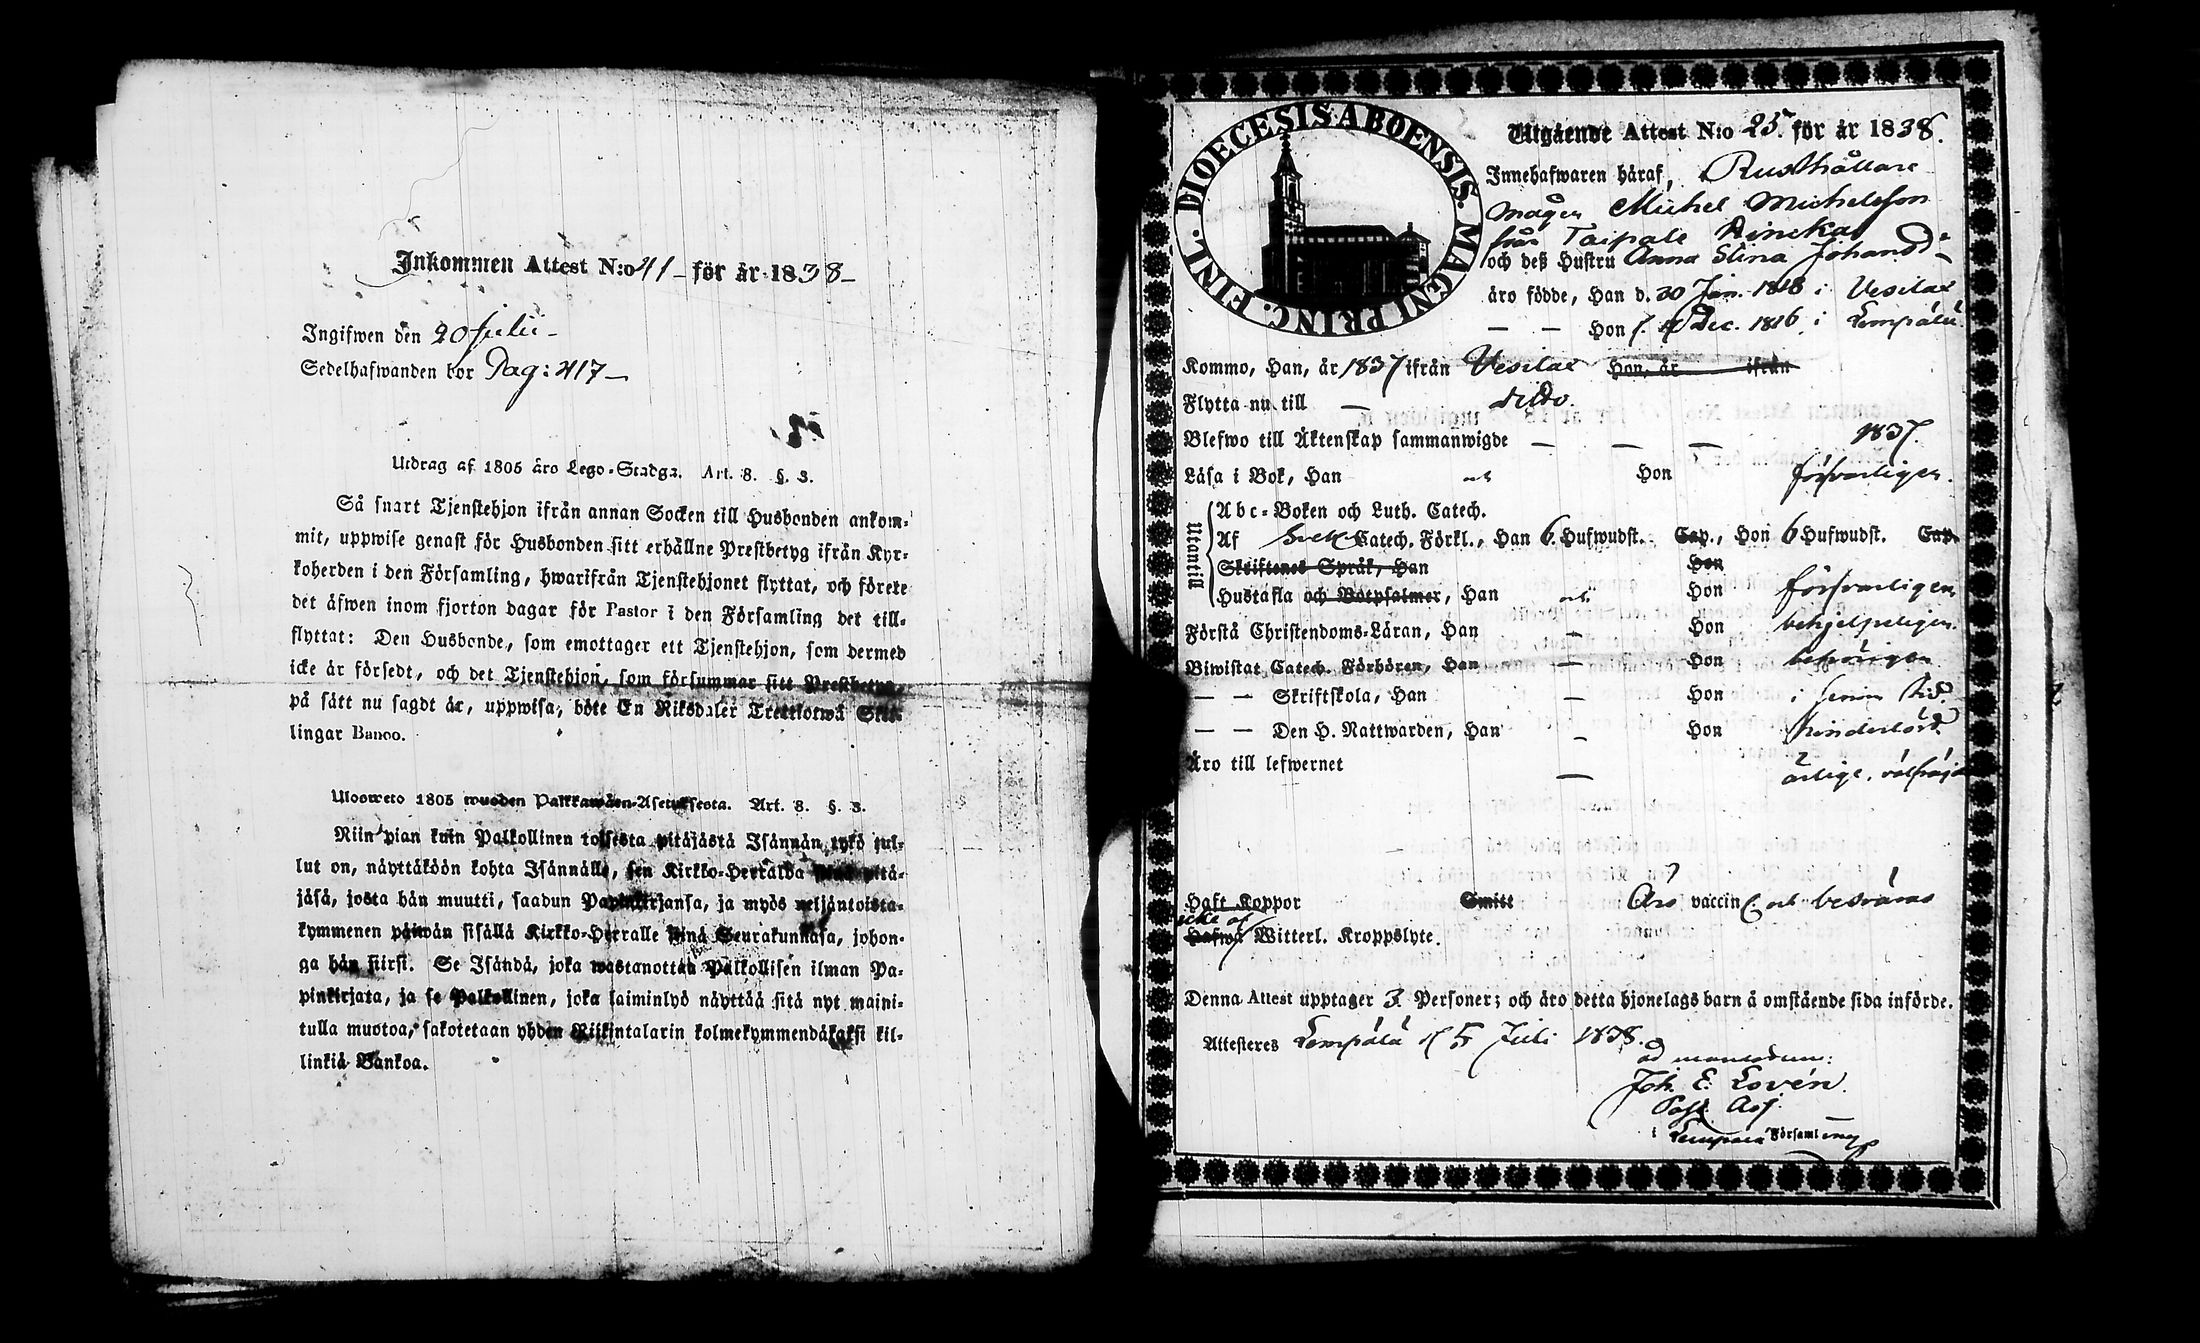 Inkommen Attest N:o 41 – för år 1838 –
Ingifwen den 20 Julii –
Sedelhafwanden bor Pag: 417 –
Utdrag af 1805 åro Lego-Stadga. Art. 8. §. 3.
Så snart Tjenstehjon ifrån annan Socken till Husbonden ankom-
mit, uppwise genast för Husbonden sitt erhållne Prestbetyg ifrån Kyr-
koherden i den Församling, hwarifrån Tjenstehjonet flyttat, och förete
det äfwen inom fjorton dagar för Pastor i den Församling det till-
flyttat: Den Husbonde, som emottager ett Tjenstehjon, som dermed
icke är försedt, och det Tjenstehjon, som försummar sitt Prestbetyg,
på sätt nu sagdt är, uppwisa, böte En Riksdaler Trettiotwå Skil-
lingar Banco.
Ulosweto 1805 wuoden Palkkawäen-Asetuksesta. Art. 8. §. 3.
Niin pian kuin Palkollinen toisesta pitäjästä Isännän tykö tul-
lut on, näyttäköön kohta Isännälle, sen Kirkko-Herralda pitä-
jäsä, josta hän muutti, saadun Papinkirjansa, ja myös neljäntoista-
kymmenen päiwän sisällä Kirkko-Herralle siinä Seurakunnasa, johon-
ga hän siirsi. Se Isändä, joka wastanottaa Palkollisen ilman Pa-
pinkirjata, ja se Palkollinen, joka laiminlyö näyttää sitä nyt maini-
tulla muotoa, sakotetaan yhden Riikintalarin kolmekymmendäkaksi kil-
linkiä Bankoa.
DIOECESIS ABOENSIS. MAGNI PRINC. FINL.
Utgående Attest N:o 25. för år 1838.
Innehafwaren häraf, Rusthållare
mågen Michel Michelsson
från Taipale
och deß Hustru Anna Stina Johansd:r
äro födde, Han d. 30 Jan. 1818 i Vesilax
— — Hon d. Dec. 1816 i Lempälä
Kommo, Han, år 1837 ifrån Vesilax Hon, år ifrån
Flytta nu till — dito.
Blefwo till Äktenskap sammanwigde — — — 1837
Läsa i Bok, Han och Hon försvarligen.
Utantill
Abc-Boken och Luth. Catech.
Af Catech. Förkl., Han 6 Hufwudst. Cap., Hon 6 Hufwudst. Cap.
Skriftenes Språk, Han Hon
Hustafla och Botpsalmer, Han och Hon försvarligen
Förstå Christendoms-Läran, Han — Hon behjelpeligen.
Biwistat Catech. Förhören, Han — Hon
— — Skriftskola, Han — Hon i sinom tid.
— — Den H. Nattwarden, Han — Hon
Äro till lefwernet — ärlige,
Haft Koppor Smitt Äro vaccin. och besväras
icke af
Hafwa Witterl. Kroppslyte.
Denna Attest upptager 3 Personer; och äro detta hjonelags barn å omstående sida införde.
Attesteres Lempälä d. 5 Juli 1838.
ad mandatum:
Joh. E. Lovén.
Past. Adj.
i Lempälä Församling